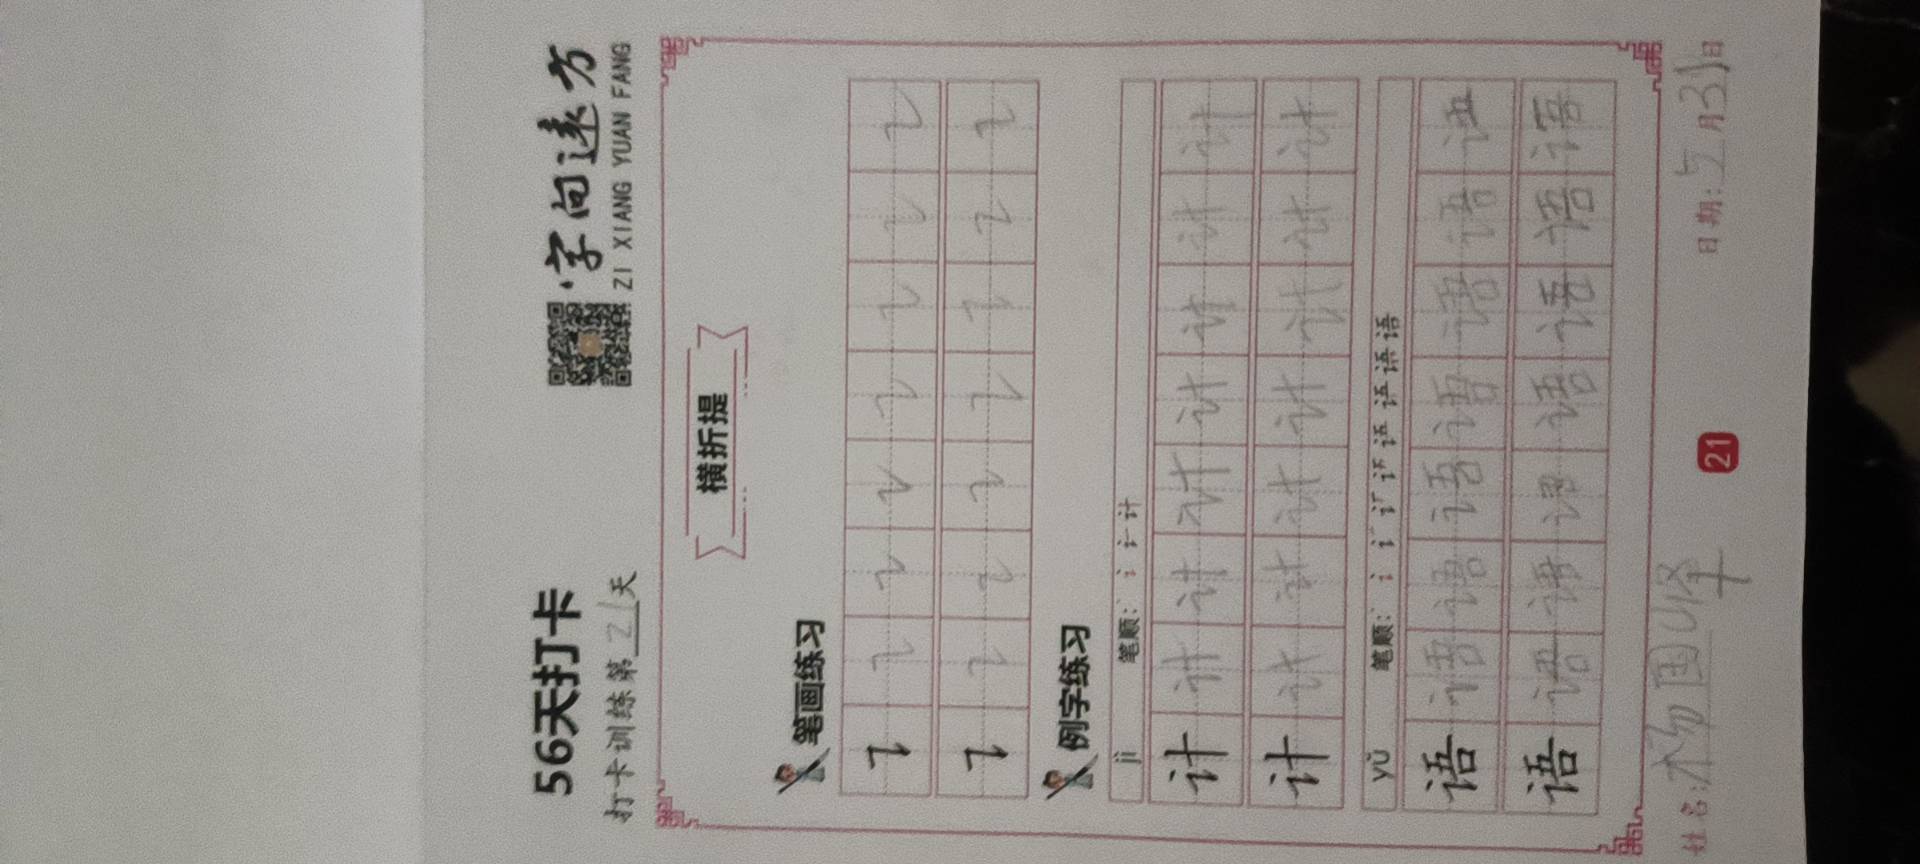 字向远方
ZI XIANG YUAN FANG
56天打卡
打卡训练第21天
横折提
笔画练习
例字练习
jì 笔顺: 丶 讠 计 计
计 计 计 计 计 计 计 计
计 计 计 计 计 计 计 计
yǔ 笔顺: 丶 讠 讠 订 语 语 语 语 语
语 语 语 语 语 语 语 语
语 语 语 语 语 语 语 语
姓名: 杨国 日期: 5月31日
21